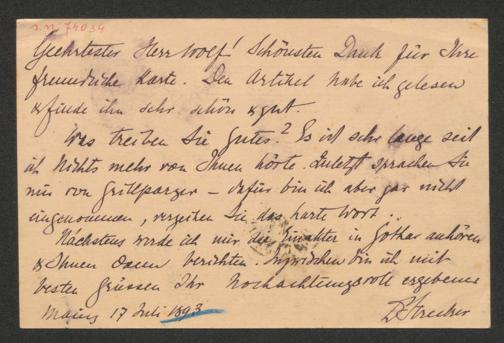 I.N. 74034
Geehrtester Herr Wolf! Schönsten Dank für Ihre
freundliche Karte. Den Artikel habe ich gelesen
& finde ihn sehr schön & gut.
Was treiben Sie Gutes? Es ist sehr lange seit
ich Nichts mehr von Ihnen hörte. Zuletzt sprachen Sie
mir von Grillparzer – dafür bin ich aber gar nicht
eingenommen, verzeihen Sie das harte Wort..
Nächstens werde ich mir die Einakter in Gotha anhören
& Ihnen dann berichten. Inzwischen bin ich mit
besten Grüssen Ihr Hochachtungsvoll ergebener
Mainz 17 Juli 1893 Strecker